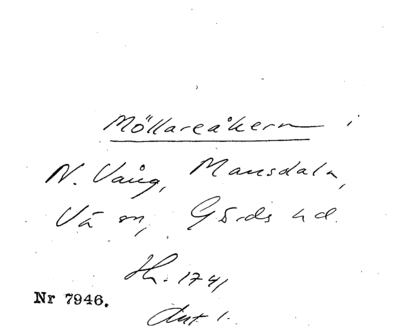 Möllareåkern i
N. Vång, Mansdala,
Vä sn, Gärds hd.
Hh. 1741
Nr 7946.
Akt 1.